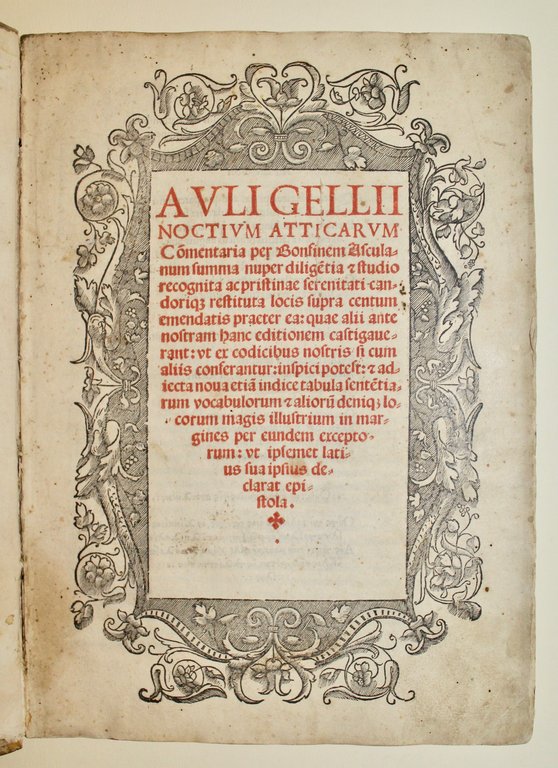 AVLI GELLII
NOCTIVM ATTICARVM
Cõmentaria per Bonfinem Ascula
num summa nuper diligẽtia ⁊ studio
recognita ac pristinae serenitati can⸗
doriqꝫ restituta locis supra centum
emendatis praeter ea: quae alii ante
nostram hanc editionem castigaue⸗
rant: vt ex codicibus nostris si cum
aliis conferantur: inspici potest: ⁊ ad⸗
iecta noua etiã indice tabula sentẽtia⸗
rum vocabulorum ⁊ aliorũ deniqꝫ lo⸗
corum magis illustrium in mar⸗
gines per eundem excepto⸗
rum: vt ipsemet lati⸗
us sua ipsius de⸗
clarat epi⸗
stola.